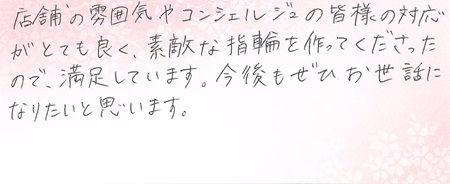 店舗の雰囲気やコンシェルジュの皆様の対応
がとても良く、素敵な指輪を作ってくださった
ので、満足しています。今後もぜひお世話に
なりたいと思います。